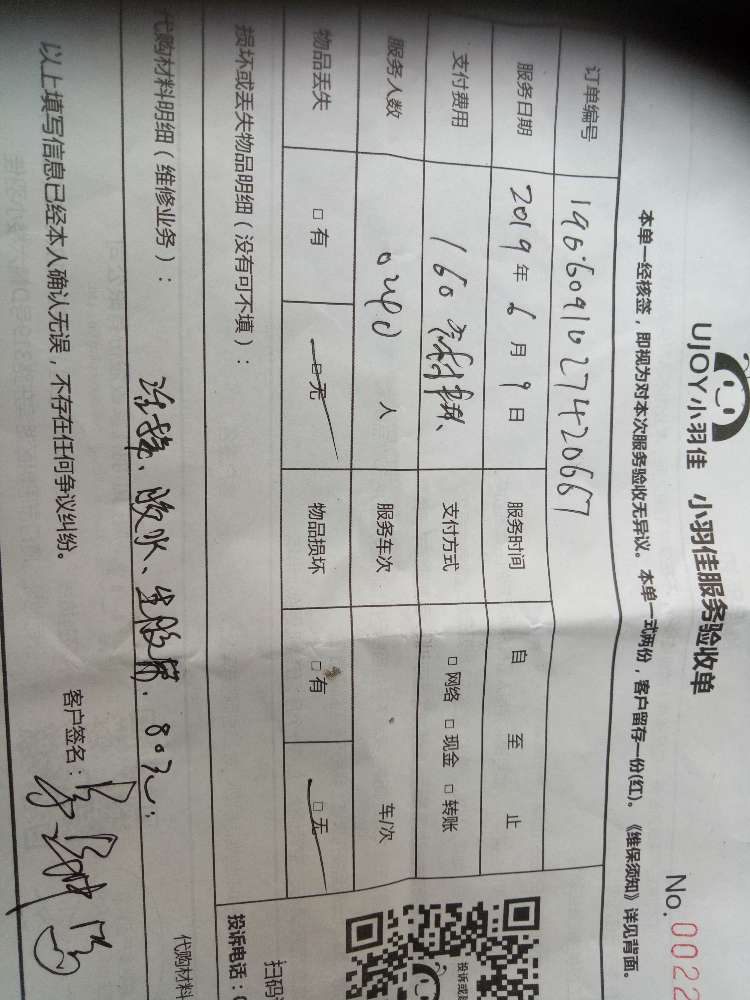 UJOY小羽佳 小羽佳服务验收单
No.0022
本单一经核签，即视为对本次服务验收无异议。本单一式两份，客户留存一份(红)。《维保须知》详见背面。
订单编号
服务日期 2019年6月9日 服务时间 自 至 止
支付费用 160 支付方式 □网络 □现金 □转账
服务人数 人 服务车次 车/次
物品丢失 □有 □无 物品损坏 □有 □无
损坏或丢失物品明细（没有可不填）：
代购材料明细（维修业务）： 胶水、生胶带. 80元. 代购材料
以上填写信息已经本人确认无误，不存在任何争议纠纷。 客户签名：
投诉或
扫码
投诉电话：